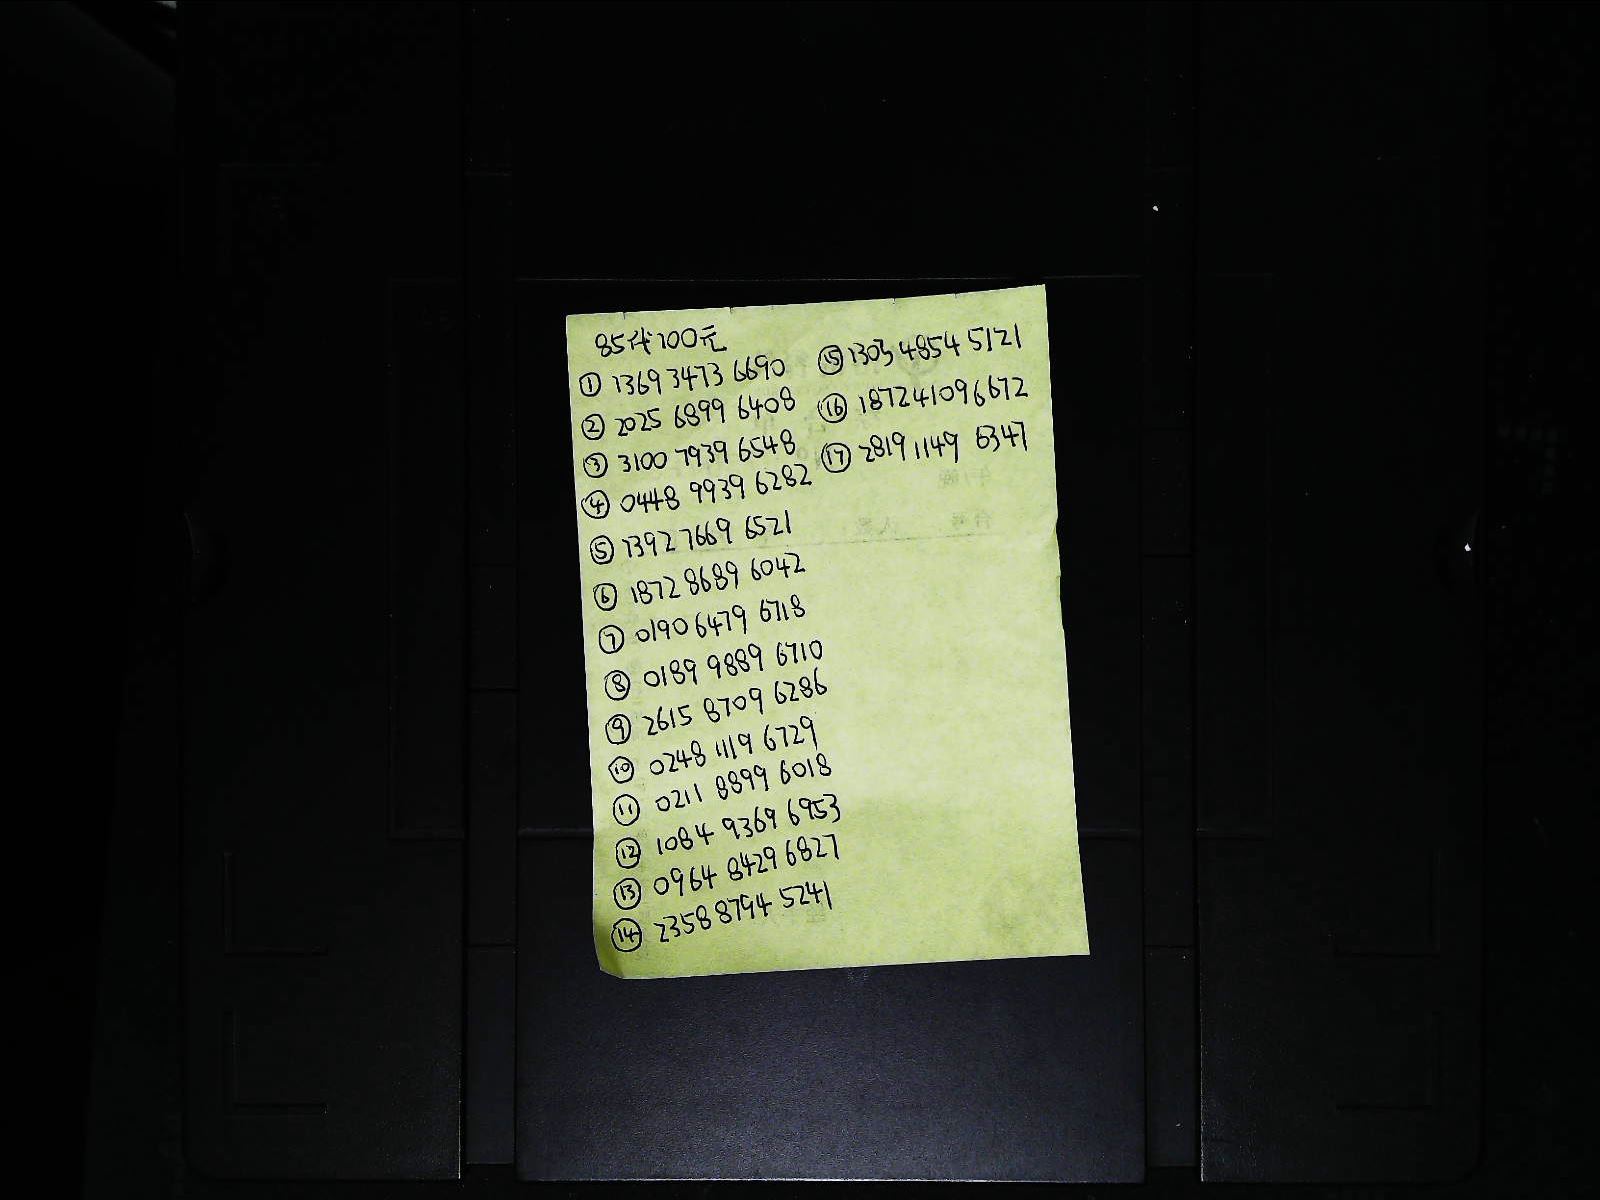 85代100元
① 1369 3473 6690
② 2025 6899 6408
③ 3100 7939 6548
④ 0448 9939 6282
⑤ 1392 7669 6521
⑥ 1872 8689 6042
⑦ 0190 6479 6718
⑧ 0189 9889 6710
⑨ 2615 8709 6286
⑩ 0248 1119 6729
⑪ 0211 8899 6018
⑫ 1084 9369 6953
⑬ 0964 8429 6827
⑭ 2358 8794 5241
⑮ 1303 4854 5121
⑯ 1872 4109 6672
⑰ 2819 1149 6347